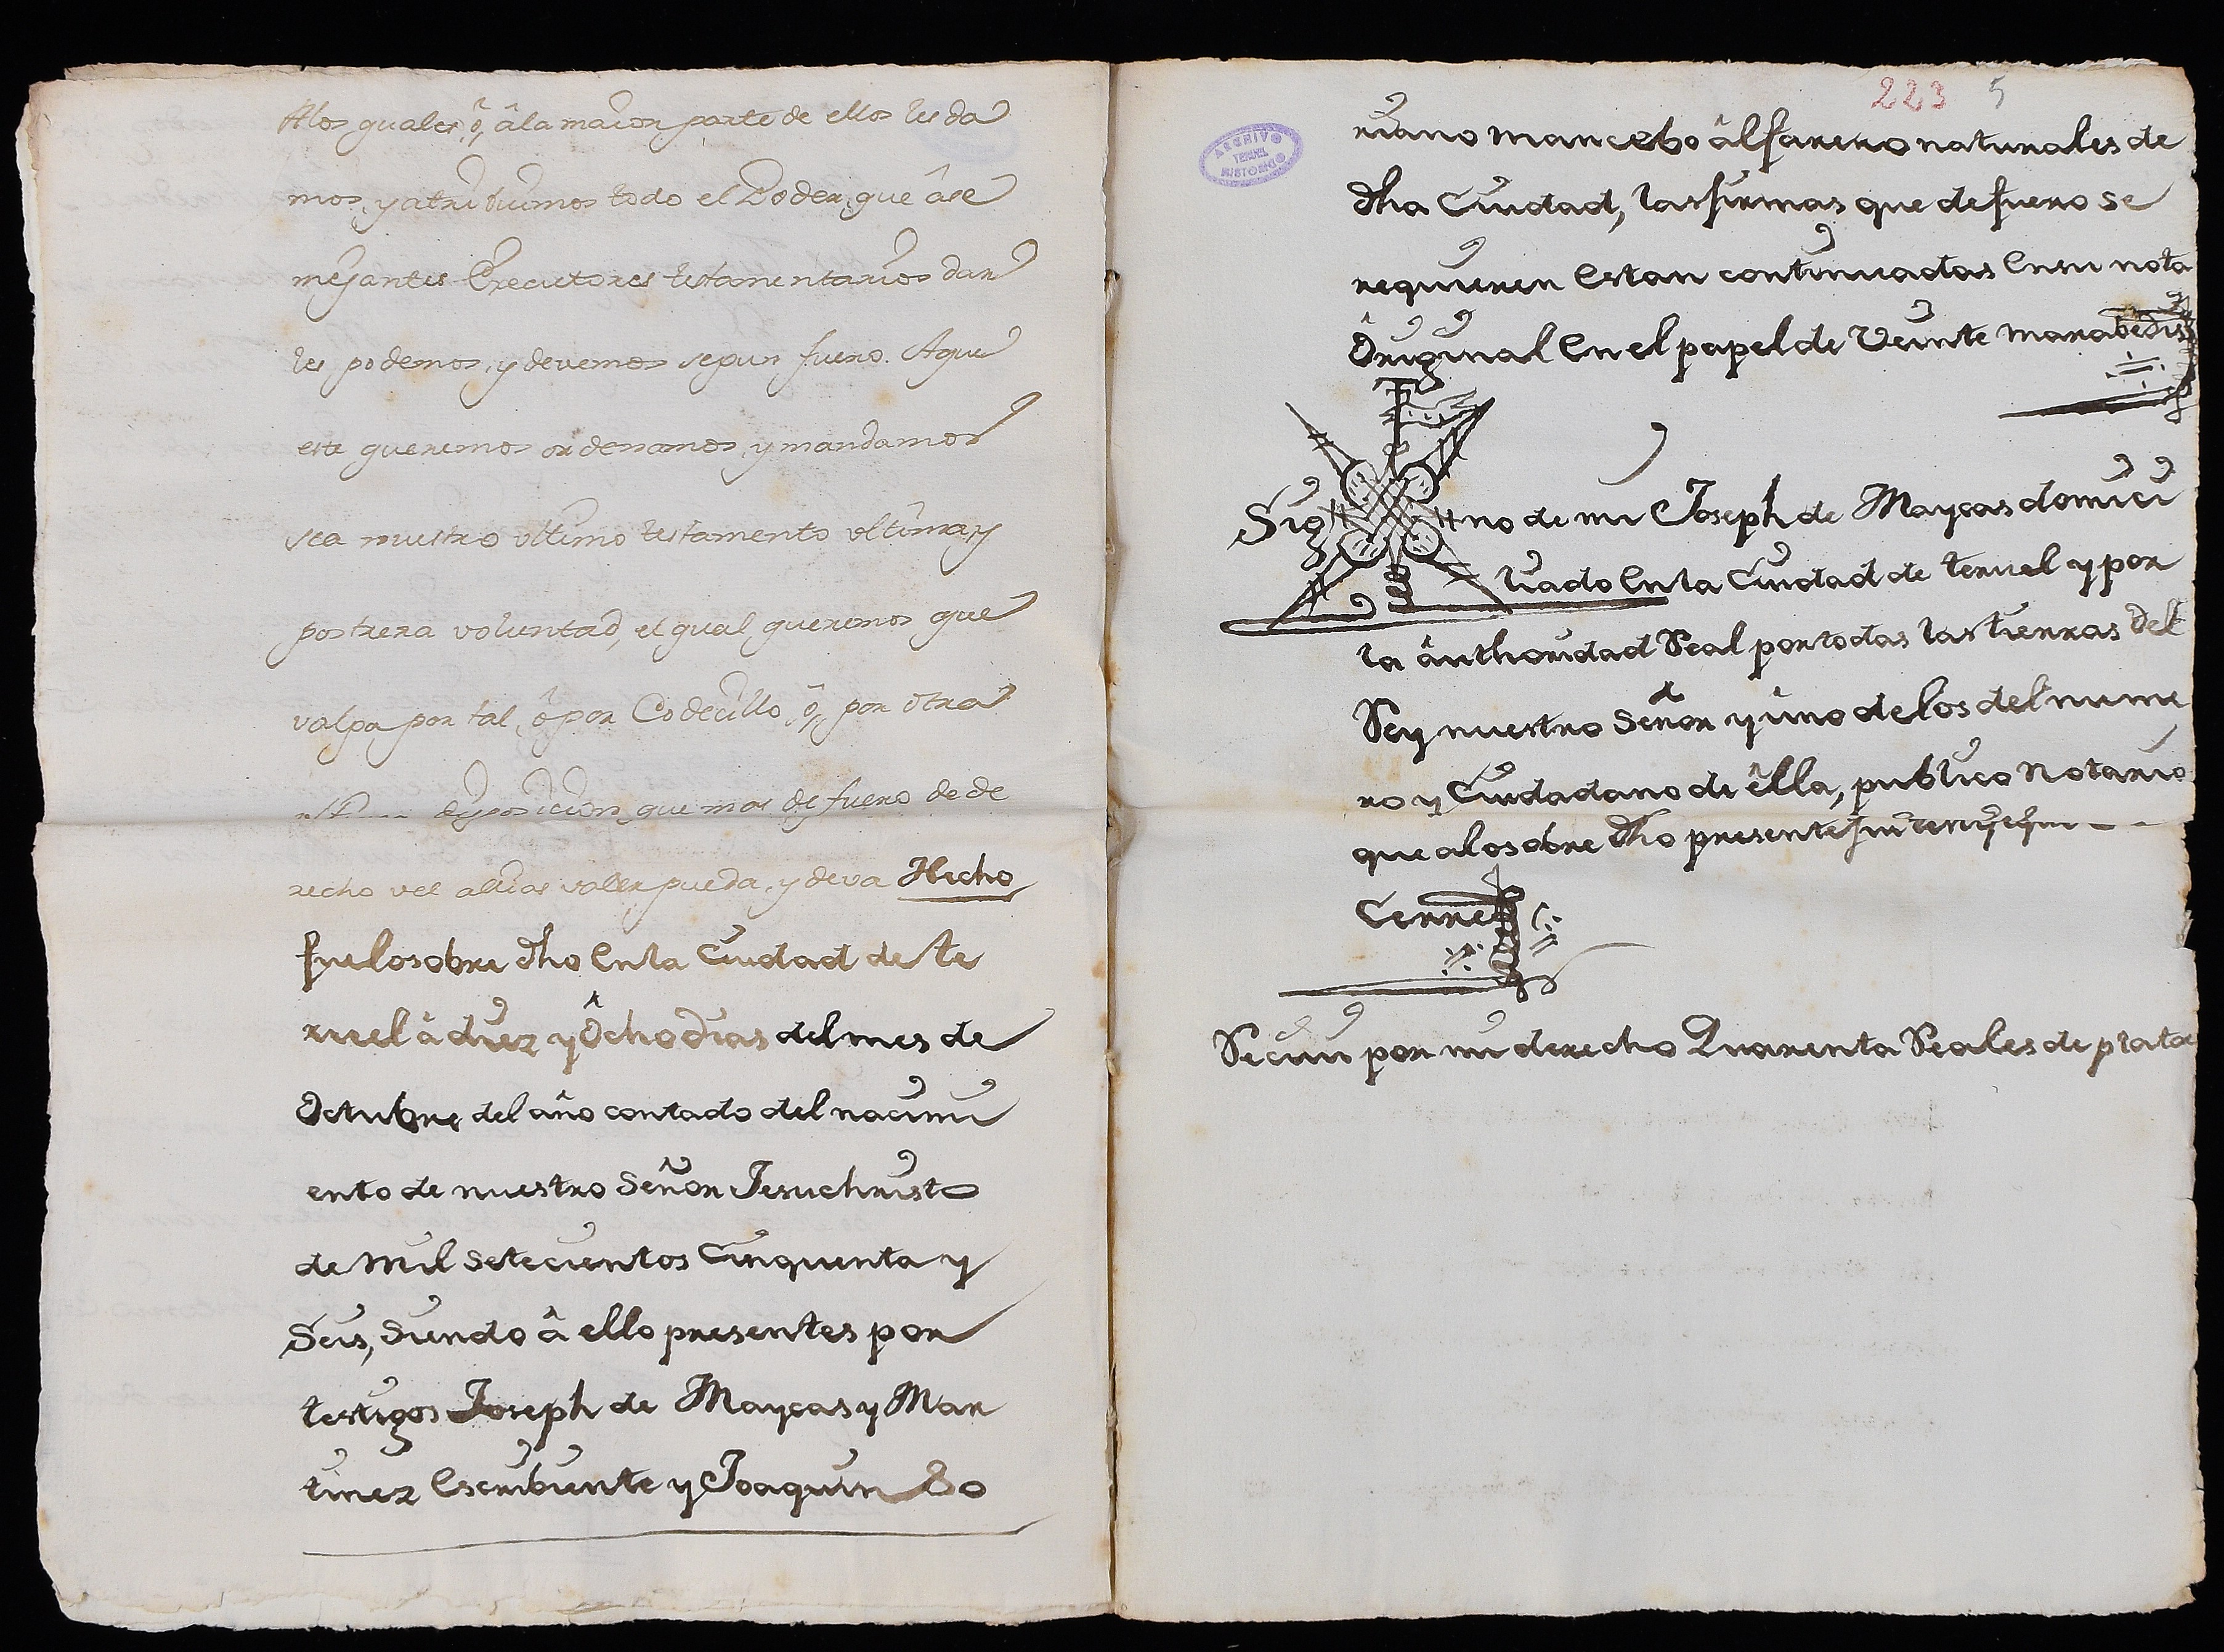 Alos quales, ô, â la maior parte de ellos les da
mos, y atribuimos todo el Poder, que â se
mejantes Executores testamentarios dar
les podemos, y devemos segun fuero. Aque
este queremos ordenamos, y mandamos
sea nuestro ultimo testamento ultima, y
postrera voluntad, el qual queremos que
valga por tal, ô, por Codecillo, ô, por otra
disposicion, que mas de fuero de de
recho vel alias valer pueda, y deva Hecho
fue lo sobre dho en la Ciudad de Te
ruel â diez y ôcho dias del mes de
Octubre del año contado del nacimi
ento de nuestro Señor Jesuchristo
de Mil setecientos Cinquenta y
Seis, siendo â ello presentes por
testigos Joseph de Mayças y Mar
tinez Escribiente y Joaquin So
223 5
ARCHIVO
TERUEL
HISTORICO
riano mancebo âlfarero naturales de
dha Ciudad, las firmas que de fuero se
requieren Estan continuadas En su nota
Ôriginal En el papel de Veinte marabedis
Sig no de mi Joseph de Mayças domici
liado En la Ciudad de teruel y por
la âuthoridad Real por todas las tierras del
Rey nuestro Señor y uno de los del nume
ro y Ciudadano de êlla, publico Notario
que a lo sobre dho presente fui
Cerre
Reciui por mi derecho Quarenta Reales de plata